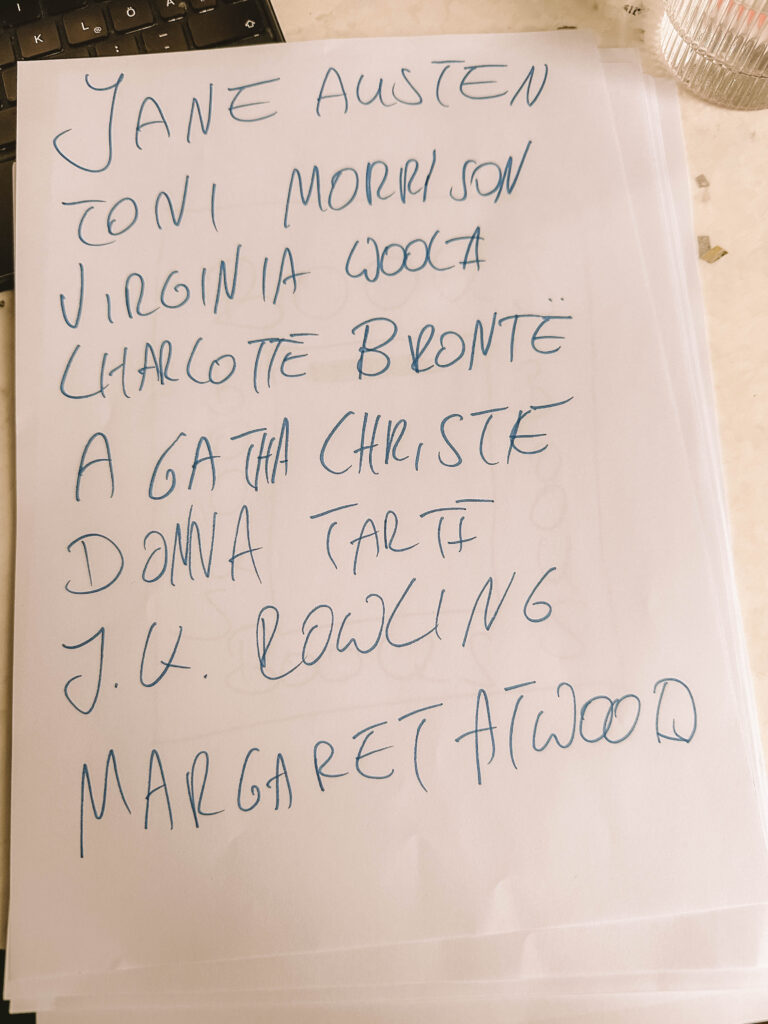 K L @ Ö Ä
JANE AUSTEN
TONI MORRISON
VIRGINIA WOOLF
CHARLOTTE BRONTË
AGATHA CHRISTIE
DONNA TARTT
J.K. ROWLING
MARGARET ATWOOD